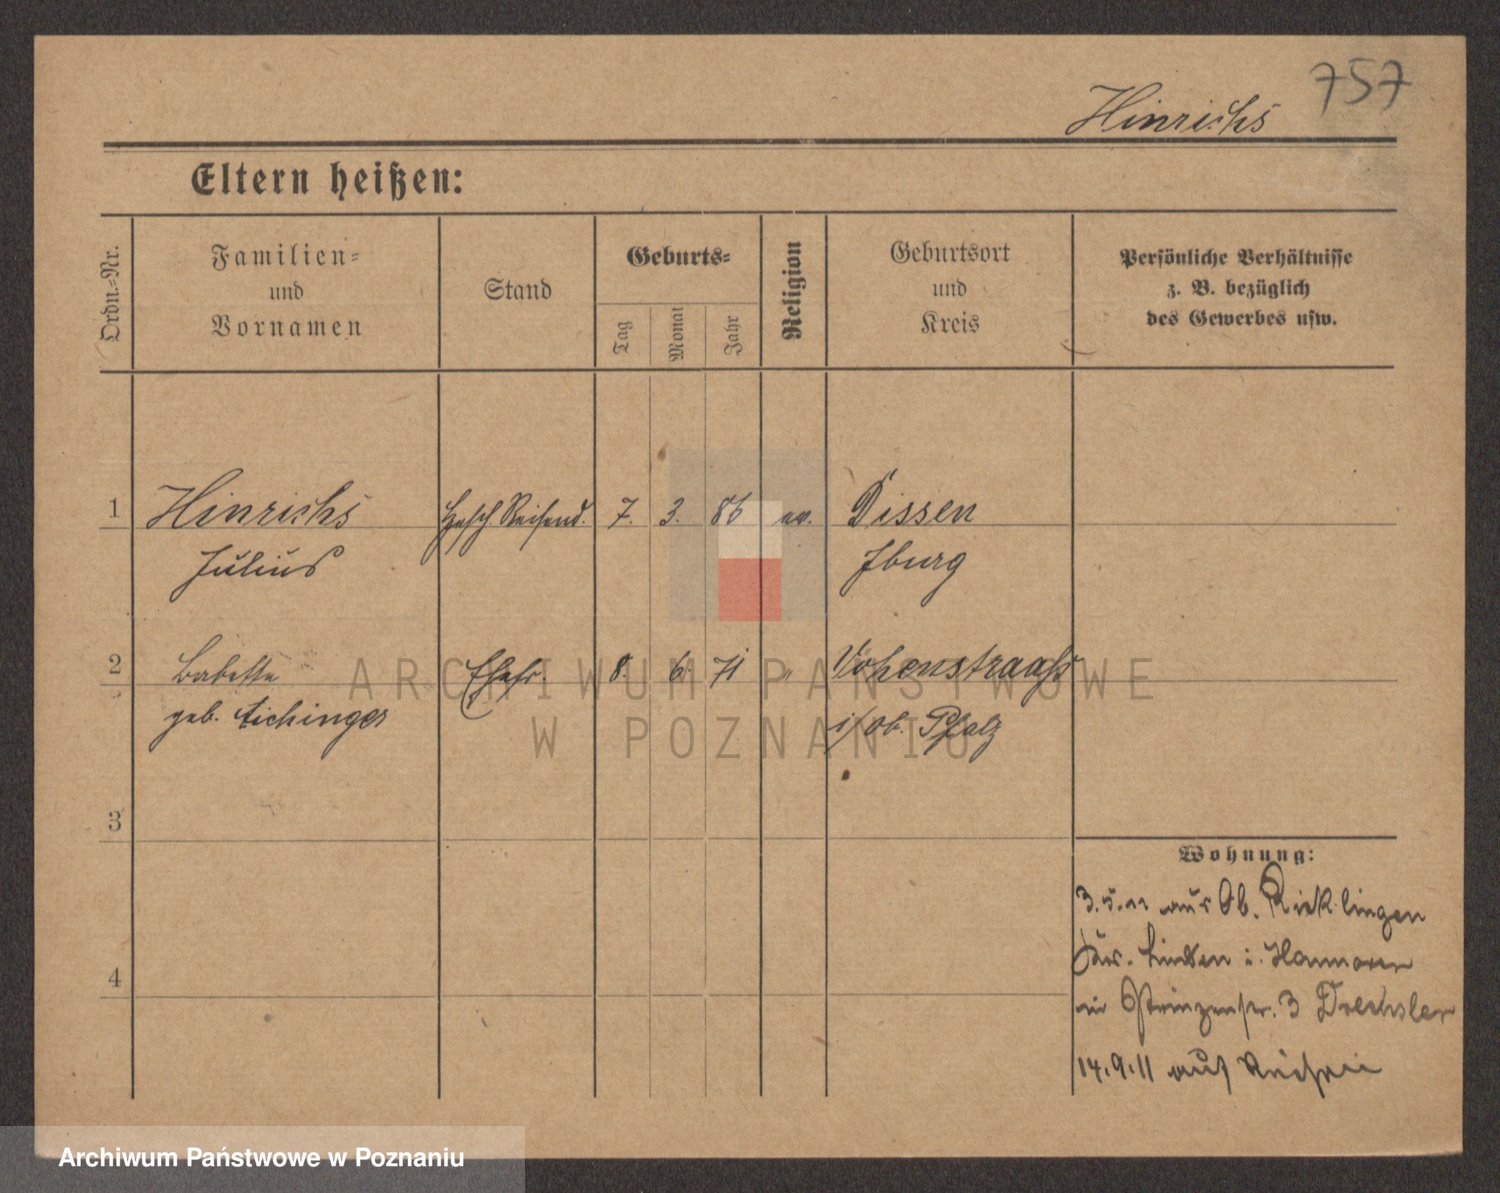 757
Hinrichs
Eltern heißen:
Ordn.-Nr.
Familien-
und
Vornamen
Stand
Geburts-
Tag
Monat
Jahr
Religion
Geburtsort
und
Kreis
Persönliche Verhältnisse
z. B. bezüglich
des Gewerbes usw.
1 Hinrichs Gesch Reisend. 7. 3. 86 ev. Dissen
Julius Iburg
2 Babette Ehefr. 8. 6. 71 " Vohenstrauß
geb. Aichinger i/Ob. Pfalz
3
4
Wohnung:
3.5.11 aus Ob. Ricklingen
Kr. Linden i. Hannover
Prinzenstr. 3 Drechsler
14.9.11 auf Reisen
ARCHIWUM PAŃSTWOWE
W POZNANIU
Archiwum Państwowe w Poznaniu